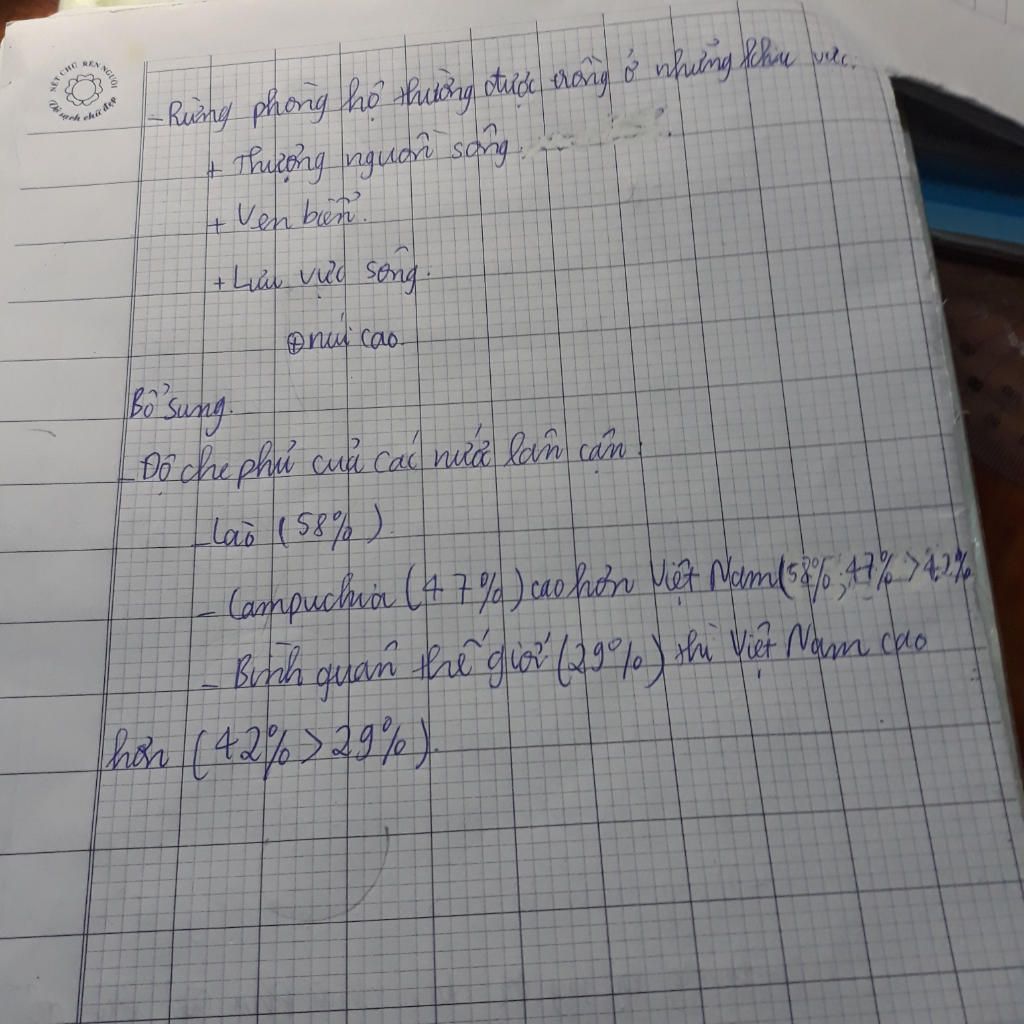 NÉT CHỮ RÈN NGƯỜI
Vở sạch chữ đẹp
- Rừng phòng hộ thường được trồng ở những khu vực:
+ Thượng nguồn sông.
+ Ven biển.
+ Lưu vực sông.
⊕ núi cao
Bổ sung.
- Độ che phủ của các nước lân cận:
- Lào (58%).
- Campuchia (47%) cao hơn Việt Nam (58%; 47% > 42%
- Bình quân thế giới (29%) thì Việt Nam cao
hơn (42% > 29%).